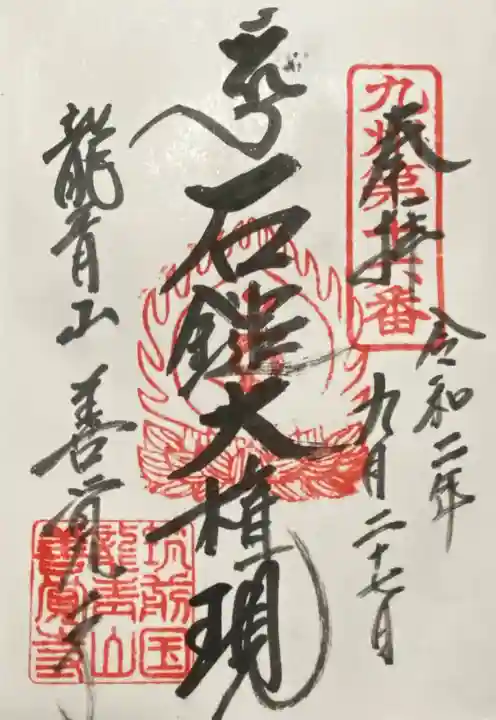 奉拝
九州第十六番
令和二年
九月二十七日
石鎚大権現
龍青山 善覚寺
筑前国
龍青山
善覚寺